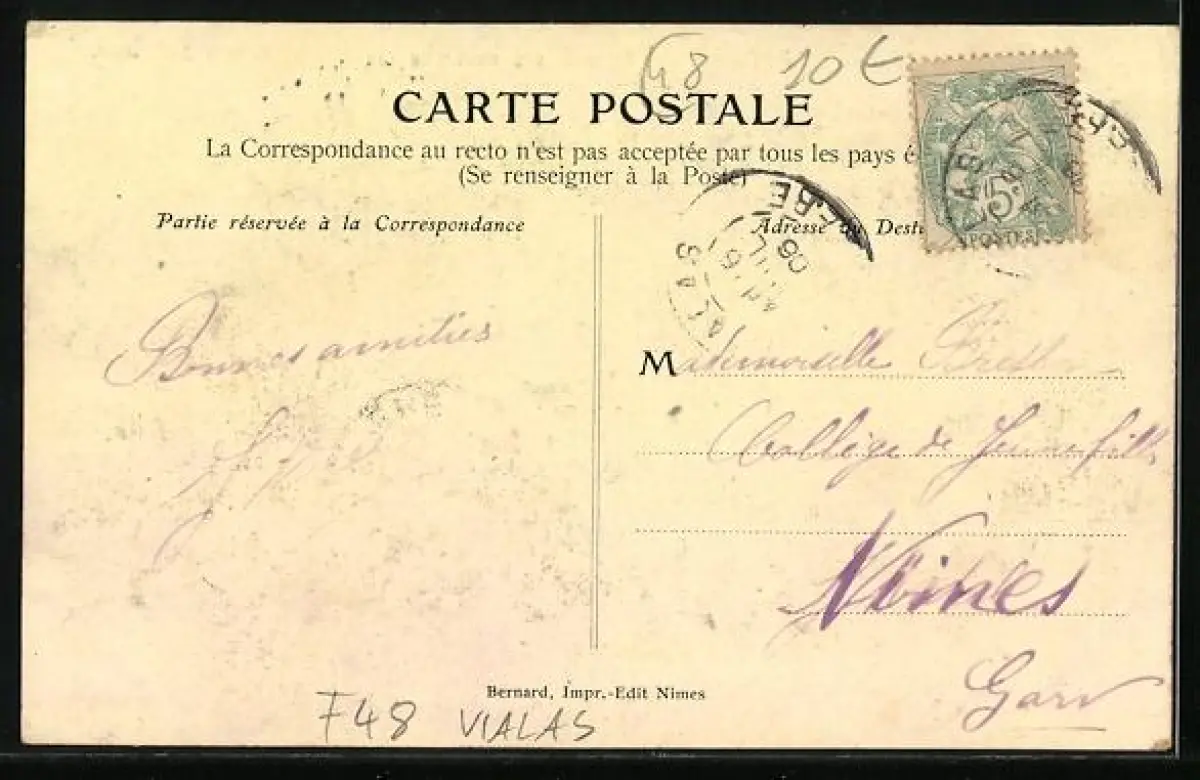 48 10 €
CARTE POSTALE
La Correspondance au recto n'est pas acceptée par tous les pays é
(Se renseigner à la Poste)
Partie réservée à la Correspondance
Adresse du Desti
VIALAS
06
5
POSTES
Bonnes amitiés
Mademoiselle
Collège de Jeunes filles
Nimes
Gard
Bernard, Impr.-Edit Nimes
F48 VIALAS